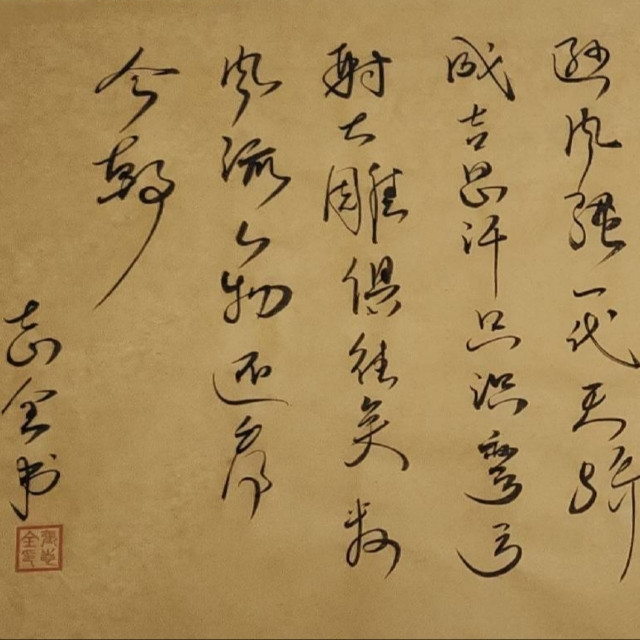 逊风骚一代天骄
成吉思汗只识弯弓
射大雕俱往矣数
风流人物还看
今朝
志全书